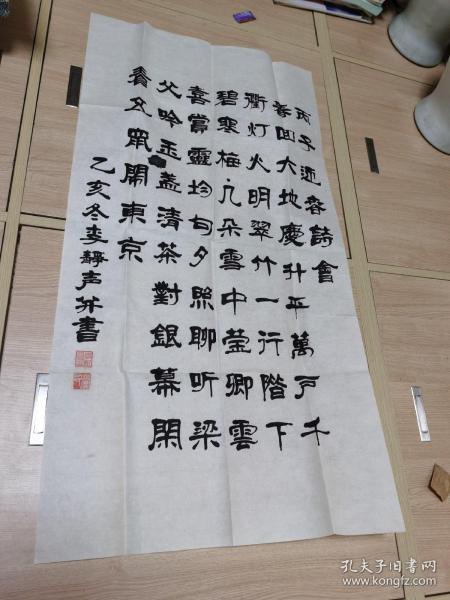 丙子迎春詩會
春回大地慶升平萬户千
衢灯火明翠竹一行階下
碧寒梅几朵雪中莹卿雲
喜賞靈均句夕照聊听梁
父吟玉盏清茶對銀幕閑
看五鼠鬧東京
乙亥冬李静声并書
孔夫子旧书网
www.kongfz.com